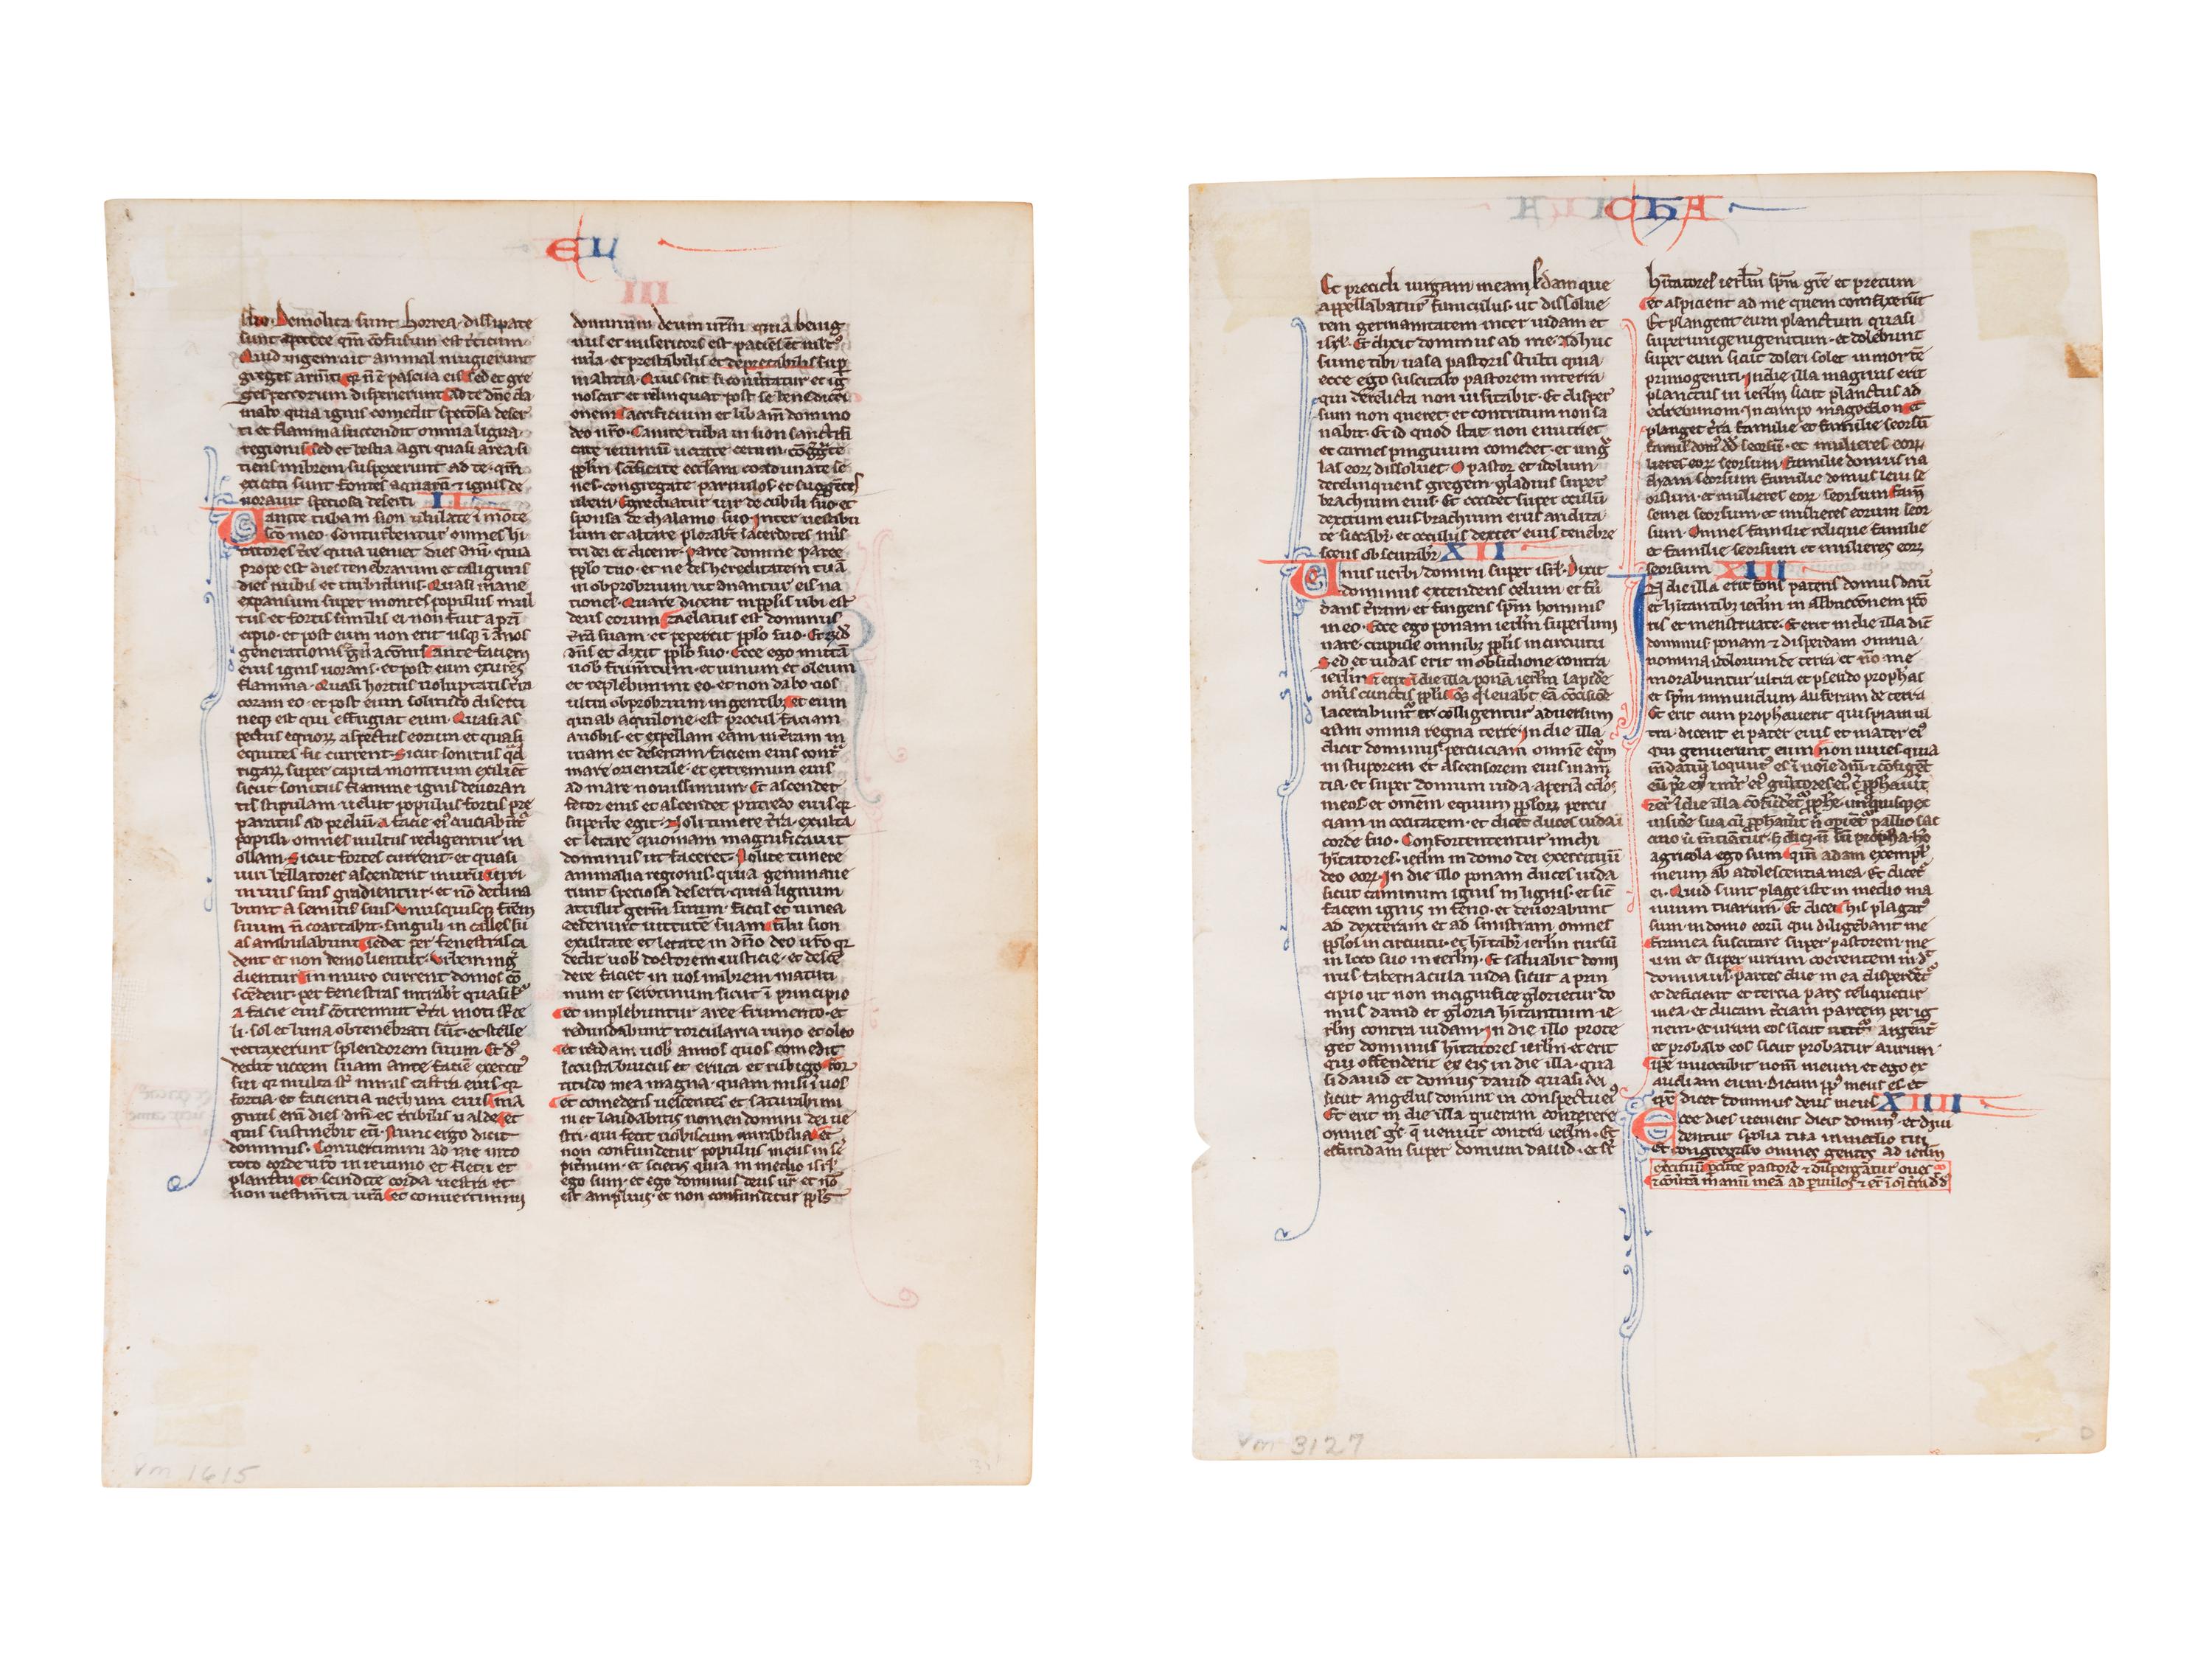 EL
suo. Demolita sunt horrea. dissipate
sunt apotece qm̄ cōfusum est t̄ticum.
Quid ingemuit animal mugierunt
greges arm̄ti. qr n̄ ē pascua eis. sed et gre
ges pecorum disperierunt. Ad te dn̄e cla
mabo quia ignis comedit speciosa deser
ti et flamma succendit omnia ligna
regionis. sed et bestia agri quasi area si
tiens imbrem. suspexerunt ad te. qm̄
exicati sunt fontes aquarū ⁊ ignis de
uorauit speciosa deserti II
Canite tuba in sion ululate ī mōte
scō meo. Conturbentur omnes hi
tatores t̄re quia uenit dies dn̄i. quia
prope est dies tenebrarum et caliginis
dies nubis et turbidinis. Quasi mane
expansum super montes populus mul
tus et fortis similis ei non fuit a pri
cipio. et post eum non erit usq; ī ānos
generationis
eius ignis uorans. et post eum exurēs
flamma. Quasi hortus uoluptatis t̄ra
coram eo. et post eum solitudo diserti
neq; est qui effugiat eum. Quasi as
pectus equorꝝ aspectus eorum et quasi
equites sic current. Sicut sonitus qͣd
rigarꝝ super capita montium exiliēt
sicut sonitus flamme ignis deuoran
tis stipulam uelut populus fortis pre
paratus ad preliū. A facie eiꝰ cruciabūtͬ
populi. omnes uultus redigentur in
ollam. Sicut fortes current. et quasi
uiri bellatores ascendent murū. uiri
in uiis suis gradientur. et nō declina
bunt a semitis suis. Unusquisq; fr̄em
suum n̄ coartabit. singuli in calles su
as ambulabunt. sed et per fenestras ca
dent et non demolientur. Urbem ingͬ
dientur. in muro current domos cō
scēdent. per fenestras intrabt̄ quasi fur
A facie eius cōtremuit t̄ra moti st̄ ce
li. sol et luna obtenebrati sūt. et stelle
retraxerunt splendorem suum. Et dn̄s
dedit uocem suam ante faciē exercitꝰ
sui qr multa st̄ nimis castra eius. qr
fortia. et facientia uerbum eius. Ma
gnus em̄ dies dn̄i et t̄ribilis ualde. et
quis sustinebit eū. Nunc ergo dicit
dominus. Conuertimini ad me into
toto corde ur̄o in ieiunio et fletu et
planctu. et scindite corda uestra et
non uestimēta ur̄a. et conuertimini
dominum deum ur̄m quia benig
nus et misericors est. paciēs ēt mltꝰ
mīa. et prestabilis et deprecabilis suꝑ
malitia. Quis scit si conuertatur et ig
noscat et relinquat post se benedicti
onem. sacrificium et libam̄ domino
deo nr̄o. Canite tuba in sion sanctifi
cate ieiuniū uocate cetum. cōgͬgate
ppl̄m scīficate ecclam coadunate se
nes. congregate paruulos. et suggētes
ubera. Egrediatur uir de cubili suo. et
sponsa de thalamo suo. Inter uestibu
lum et altare plorabt̄ sacerdotes mīs
tri dei et dicent. parce domine parce
pplo tuo. et ne des hereditatem tuā
in obprobrium ut dn̄antur eis na
tiones. Quare dicent in pplis ubi est
deus eorum. Zelatus est dominus
t̄rā suam. et pepercit pplo suo. Et rn̄dit
dn̄s et dixit pplo suo. Ecce ego mittā
uob frum̄tum. et uinum et oleum
et replebimini eo. et non dabo uos
ultra obprobrium in gentib;. et eum
qui ab aquilone est procul faciam
a uobis. et expellam eam in t̄ram in
uiam et desertam. faciem eius contͣ
mare orientale. et extremum eius
ad mare nouissimum. Et ascendet
fetor eius et ascendet putredo eius. qr
superbe egit. Noli timere t̄ra. exulta
et letare quoniam magnificauit
dominus ut faceret. Nolite timere
animalia regionis. quia germinaue
runt speciosa deserti. quia lignum
attulit germ̄ suum. ficus et uinea
dederunt uirtutē suam. filii sion
exultate et letate in dn̄o deo ur̄o. qr
dedit uob doctorem iusticie. et desce
dere faciet in uos imbrem matuti
num et serotinum sicut ī principio
et implebuntur aree frumento. et
redundabunt torcularia uino et oleo
et reddam uob annos quos comedit
locusta brucus et eruca et rubigo. for
titudo mea magna. quam misi ī uos
et comedetis uescentes et saturabimi
ni et laudabitis nomen domini dei ue
stri. qui fecit uobiscum mirabilia. et
non confundetur populus meus in se
piternum. et scietis quia in medio isrl̄
ego sum. et ego dominus deus ur̄. et nō
est amplius. et non confundetur ppls
Vm 1615
CHA
Et precidi uirgam meam scdam que
appellabatur funiculus. ut dissolue
rem germanitatem inter iudam et
isrl̄. Et dixit dominus ad me. Adhuc
sume tibi uasa pastoris stulti quia
ecce ego suscitabo pastorem in terra
qui derelicta non uisitabit. Et disper
sum non queret. et contritum non sa
nabit. Et id quod stat non enutriet
et carnes pinguium comedet. et ungͧ
las eorꝝ dissoluet. O pastor et idolum
derelinquens gregem. gladius super
brachium eius. Et occidet super oculū
dextrum eius. brachium eius aridita
te siccabt̄. et occulus dexter eius tenebre
scens obscurabt̄ XII
Onus uerbi domini super isrl̄. Dixit
dominus extendens celum et fū
dans t̄ram et fingens spm̄ hominis
in eo. Ecce ego ponam ierlm̄ superlimi
nare. crapule omnib; pplis in circuitu
Sed et iudas erit in obsidione contra
ierlm̄. et erit ī die illa ponā ierlm̄ lapidē
on̄is cunctis pplis. Oēs qi leuabt̄ eā cōcisione
lacerabunt̄ et colligentur aduersum
eam omnia regna terre. In die illa
dicit dominus percuciam omnē eqm̄
in stuporem et ascensorem eius in am̄
tia. et super domum iuda aperiā oclos
meos. et omēm equum pplorꝝ percu
ciam in cecitatem. et dicēt duces iuda
corde suo. Confortentur michi
hītatores ierlm̄ in domo dei exercituū
deo eorꝝ. In die illo ponam duces iuda
sicut caminum ignis in lignis. et sic̄
facem ignis in feno. et deuorabunt
ad dexteram et ad sinistram omnes
pplos in circuitu. et hītabt̄ ierlm̄ rursū
in loco suo in ierlm̄. Et saluabit domi
nus tabernacula iuda sicut a prin
cipio ut non magnifice glorietur do
mus dauid et gloria hītantium ie
rlm̄ contra iudam. In die illo prote
get dominus hītatores ierlm̄. et erit
qui offenderit ex eis in die illa. qua
si dauid et domus dauid quasi dei
sicut angelus domini in conspectu eiꝰ
Et erit in die illa queram conterere
omnes gēs q̄ ueniūt contra ierlm̄. Et
effundam super domum dauid. et sr̄
hītatores ierlm̄ spm̄ grē et precum
Et aspicient ad me quem comfixerūt
Et plangent eum planctum quasi
super unigenigenitum. et dolebunt
super eum sicut doleri solet in mortē
primogeniti. In die illa magnus erit
planctus in ierlm̄ sicut planctus ad
edrebunom in campo magedon. Et
planget t̄ra familie et familie seorsū
familie domꝰ dd̄ seorsū. et mulieres eorꝝ
lieres eorꝝ seorsum. Familie domus na
tham seorsum familie domus leui se
orsum. et mulieres eorꝝ seorsum. Fam̄
semei seorsum. et mulieres eorum seor
sum. Omnes familie relique familie
et familie seorsum et mulieres eorꝝ
seorsum XIII
In die illa erit fons patens domus dauid
et hītantib; ierlm̄ in ablucōnem pctō
ris et menstruate. Et erit in die illa dic̄
dominus ponam ⁊ disperdam omnia
nomina idolorum de terra et nō me
morabuntur ultra. et pseudo prophas
et spm̄ inmundum auferam de terra
Et erit cum prophauerit quispiam ul
tra. dicent ei pater eius et mater eiꝰ
qui genuerunt eum. non uiues. quia
mendatiū locutꝰ es ī noīe dn̄i. ⁊ cōfigēt
agricola ego sum. qm̄ adam exempl̄
meum ab adolescentia mea. Et dicet̄
ei. Quid sunt plage iste in medio ma
nuum tuarum. Et dicet. his plagatꝰ
sum in domo eorū qui diligebant me
Framea suscitare super pastorem me
um et super uirum coerentem m̄ dc̄
dominus. partes due in ea disperdētͬ
et deficient et tercia pars relinquetur
in ea. et ducam t̄ciam partem per ig
nem. et uram eos sicut uritͬ argent̄
et probabo eos sicut probatur aurum.
ipse inuocabit nom̄ meum et ego ex
audiam eum. Dicam pps meus es. et
ipse dicet dominus deus meus XIIII
Ecce dies uenient dicit domin̄. et diui
dentur spolia tua in medio tui
Et congregabo omnes gentes ad ierlm̄
exercituū. percute pastorē ⁊ dispergātur oues
⁊ cōuertā manū meā ad paruulos. ⁊ er̄t ī oī t̄ra
Vm 3127